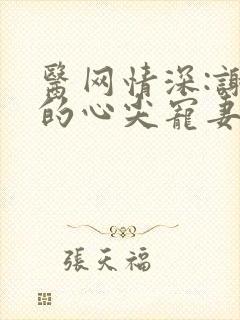 醫网情深:謝
的心尖寵妻
張天福